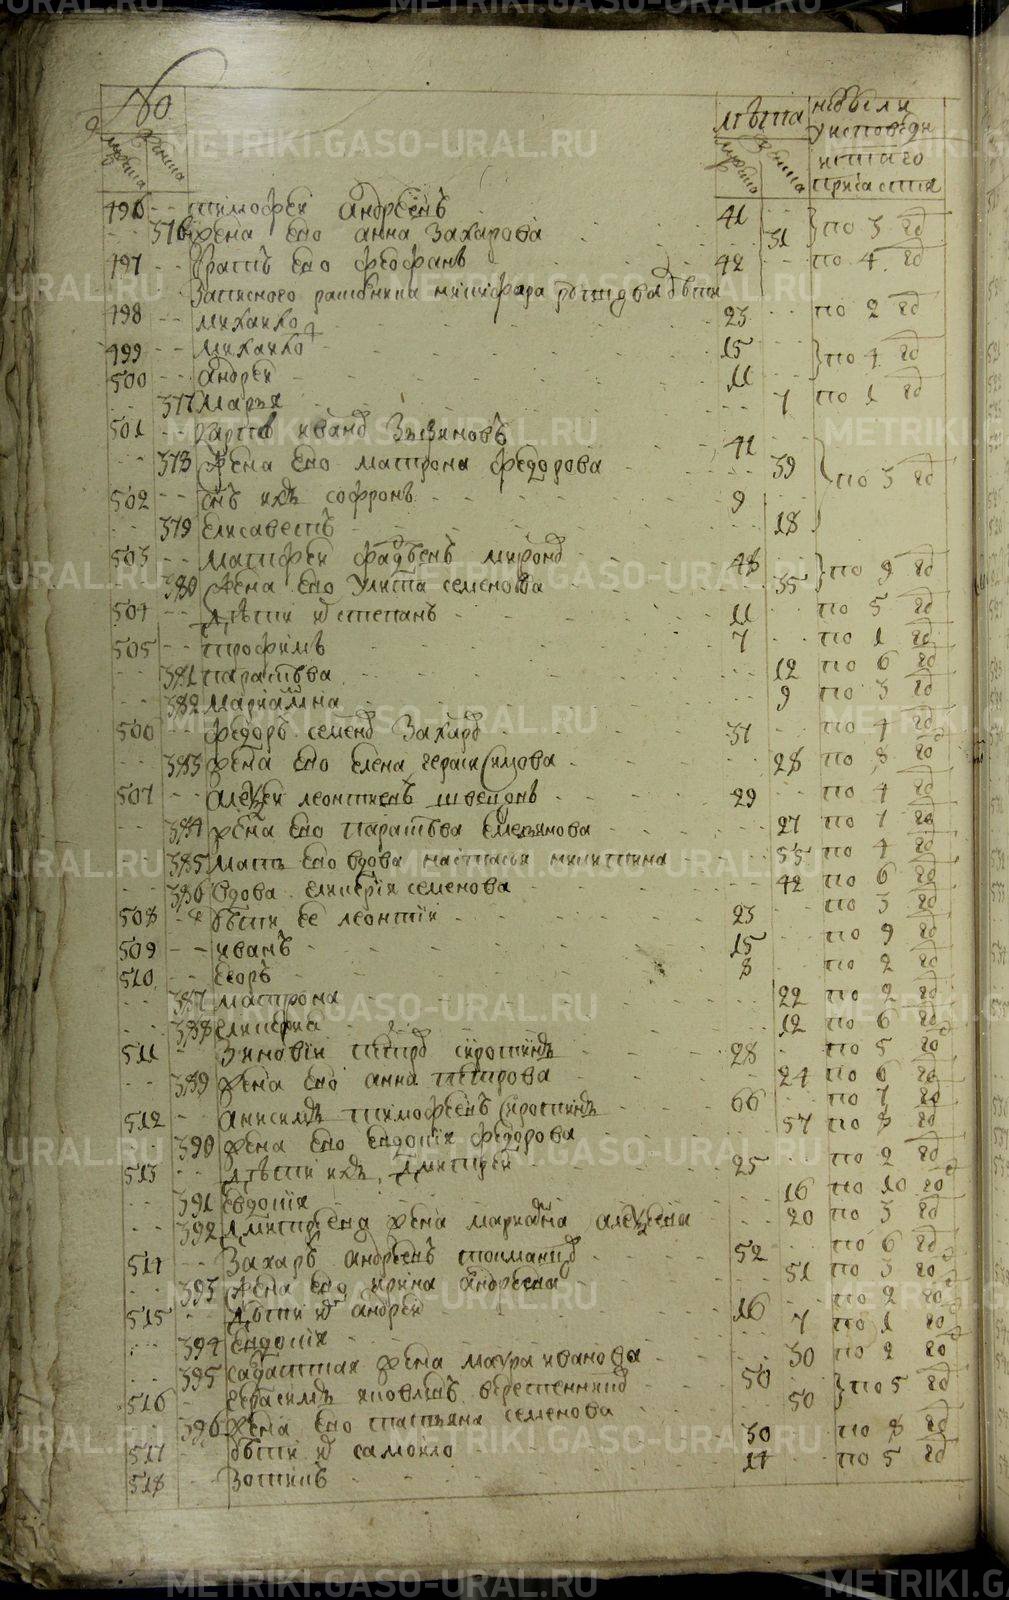 № лѣта не были
у исповеди
и стаго
причастия
496 тимофеи андрѣевъ 41 по 3 гд
376 жена ево анна захарова 31
497 братъ ево феофанъ 42 по 4 гд
записного никифора дѣти
498 михаило 23 по 2 гд
499 михаило 15 по 4 гд
500 андреи 11
377 марья 7 по 1 гд
501 иванъ 41
378 жена ево матрона федорова 39 по 3 гд
502 снъ ихъ софронъ 9
379 елисаветъ 18
503 матфеи фадѣевъ 48 по 9 гд
380 жена ево улита семенова 35
504 дѣти их степанъ 11 по 5 гд
505 трофимъ 7 по 1 гд
381 парасъва 12 по 6 гд
382 мариамна 9 по 3 гд
500 федоръ семенъ захаръ 31 по 4 гд
383 жена ево елена герасимова 28 по 8 гд
507 алеѯеи леонтиевъ швецовъ 29 по 4 гд
384 жена ево парасъва емельянова 27 по 7 гд
385 мать ево вдова настасья никитина 55 по 4 гд
386 вдова гликерия семенова 42 по 6 гд
508 дѣти ее леонтии 23 по 3 гд
509 иванъ 15 по 9 гд
510 егоръ 8 по 2 гд
387 матрона 22 по 2 гд
388 гликерия 12 по 6 гд
511 зиновии петръ сиротинъ 28 по 5 гд
389 жена ево анна петрова 24 по 6 гд
512 анисимъ тимофѣевъ сиротинъ 66 по 7 гд
390 жена ево евдокия федорова 57 по 8 гд
513 дѣти ихъ дмитреи 25 по 2 гд
391 евдокия 16 по 10 гд
392 дмитреева жена мариамна алеѯеева 20 по 3 гд
514 захаръ андрѣевъ 52 по 6 гд
393 жена ево ирина андреева 51 по 3 гд
515 дѣти их андреи 16 по 2 гд
394 евдокия 7 по 1 гд
395 салдатская жена мавра иванова 30 по 2 гд
516 герасимъ яковлевъ 50 по 5 гд
396 жена ево татьяна семенова 50
517 дѣти их самоило 30 по 8 гд
518 зотикъ 14 по 5 гд
METRIKI.GASO-URAL.RU